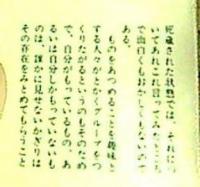 死蔵された状態では、それについ
いてあれこれ言ってみたところ
で面白くもおかしくもないので
ある。
ものをあつめることを趣味と
する人々がとかくグループをつ
くりたがるというのもそのため
で、自分がもっているもの、あ
るいは自分しかもっていないも
のは、誰かに見せないかぎりは
その存在をみとめてもらうこと